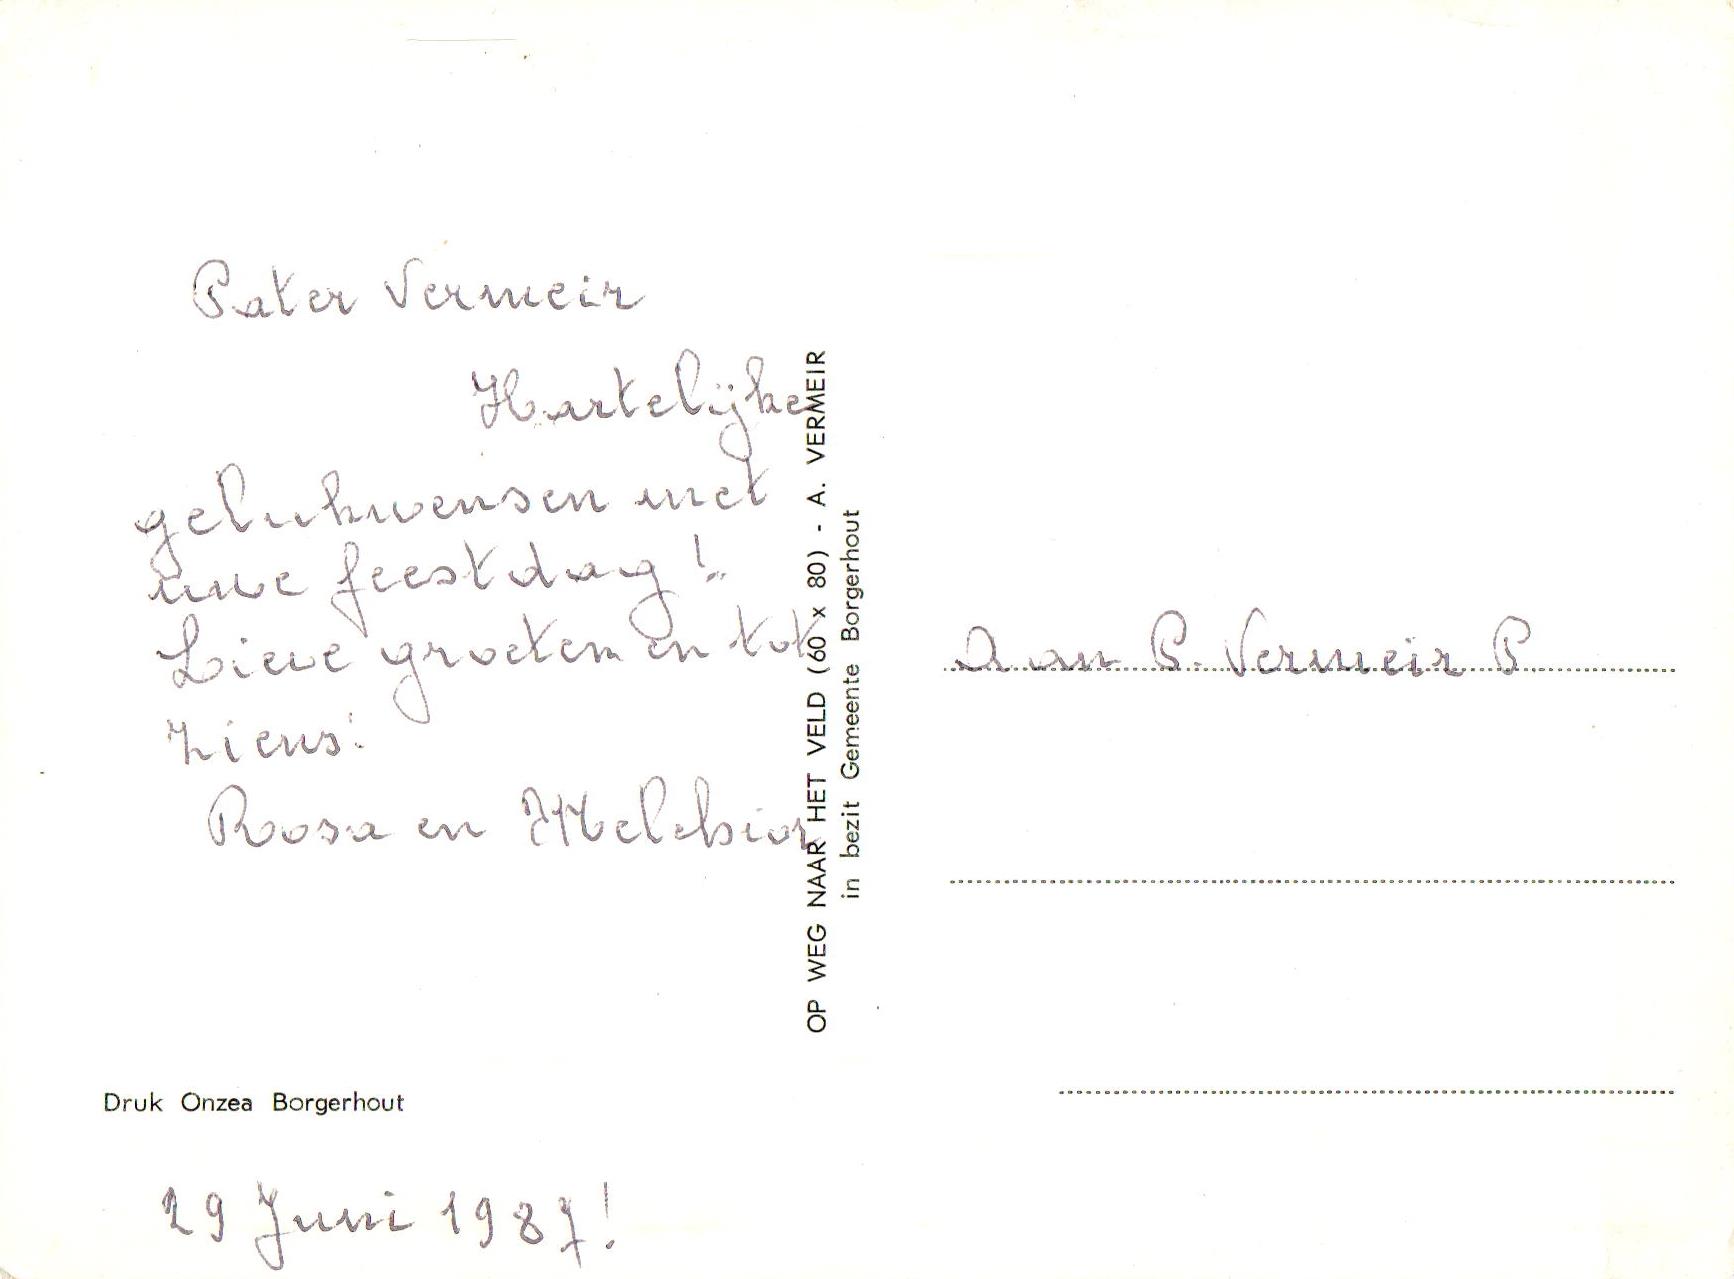 Pater Vermeir
Hartelijke
gelukwensen met
uwe feestdag!
Lieve groeten en tot
ziens!
Rosa en Melchior
Druk Onzea Borgerhout
29 Juni 1987!
OP WEG NAAR HET VELD (60 x 80) - A. VERMEIR
in bezit Gemeente Borgerhout
Aan P. Vermeir P.